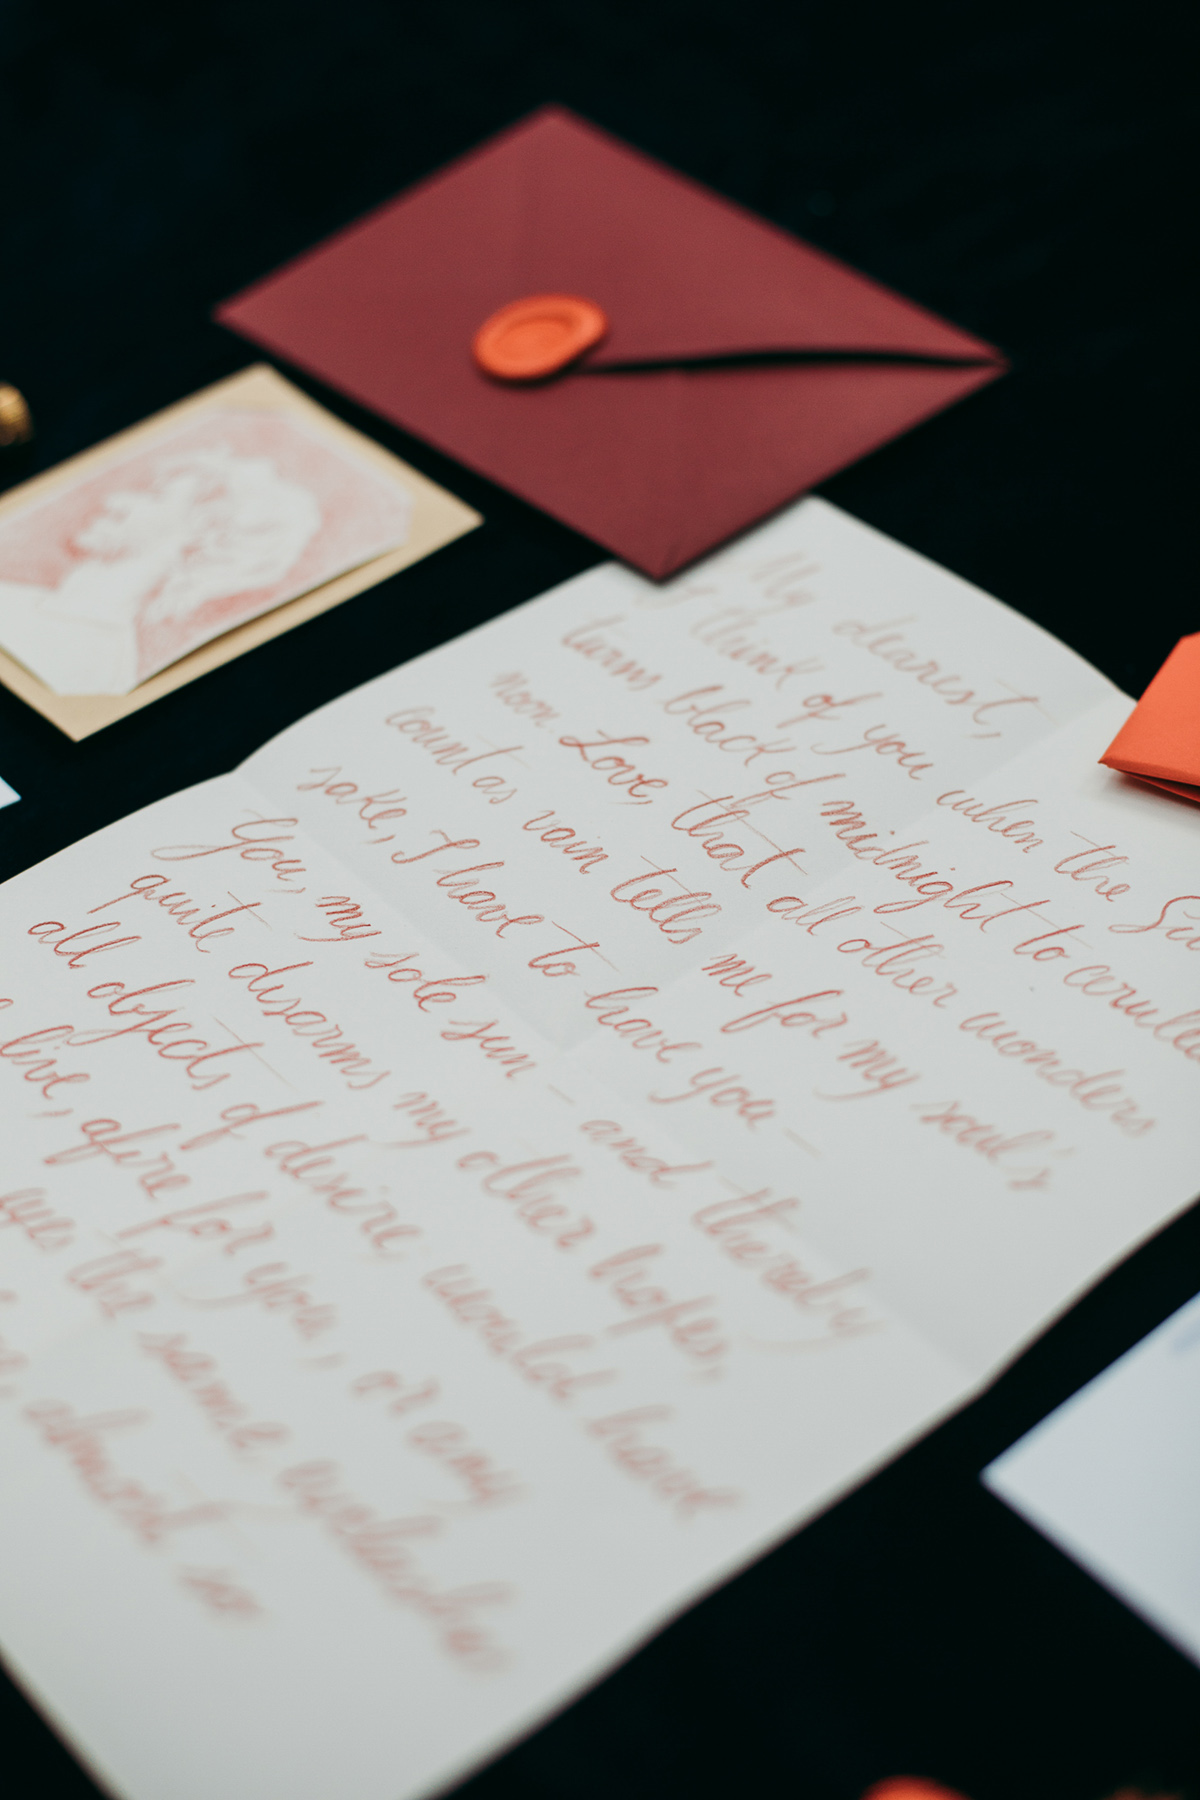 My dearest,
think of you when the
turns black of midnight to
noon. Love, that all other wonders
count as vain tells me for my soul's
sake, I have to have you –
You, my sole sun – and thereby
quite disarms my other hopes,
all objects of desire, would have
live, afire for you, or any
eyes the same,
almost so